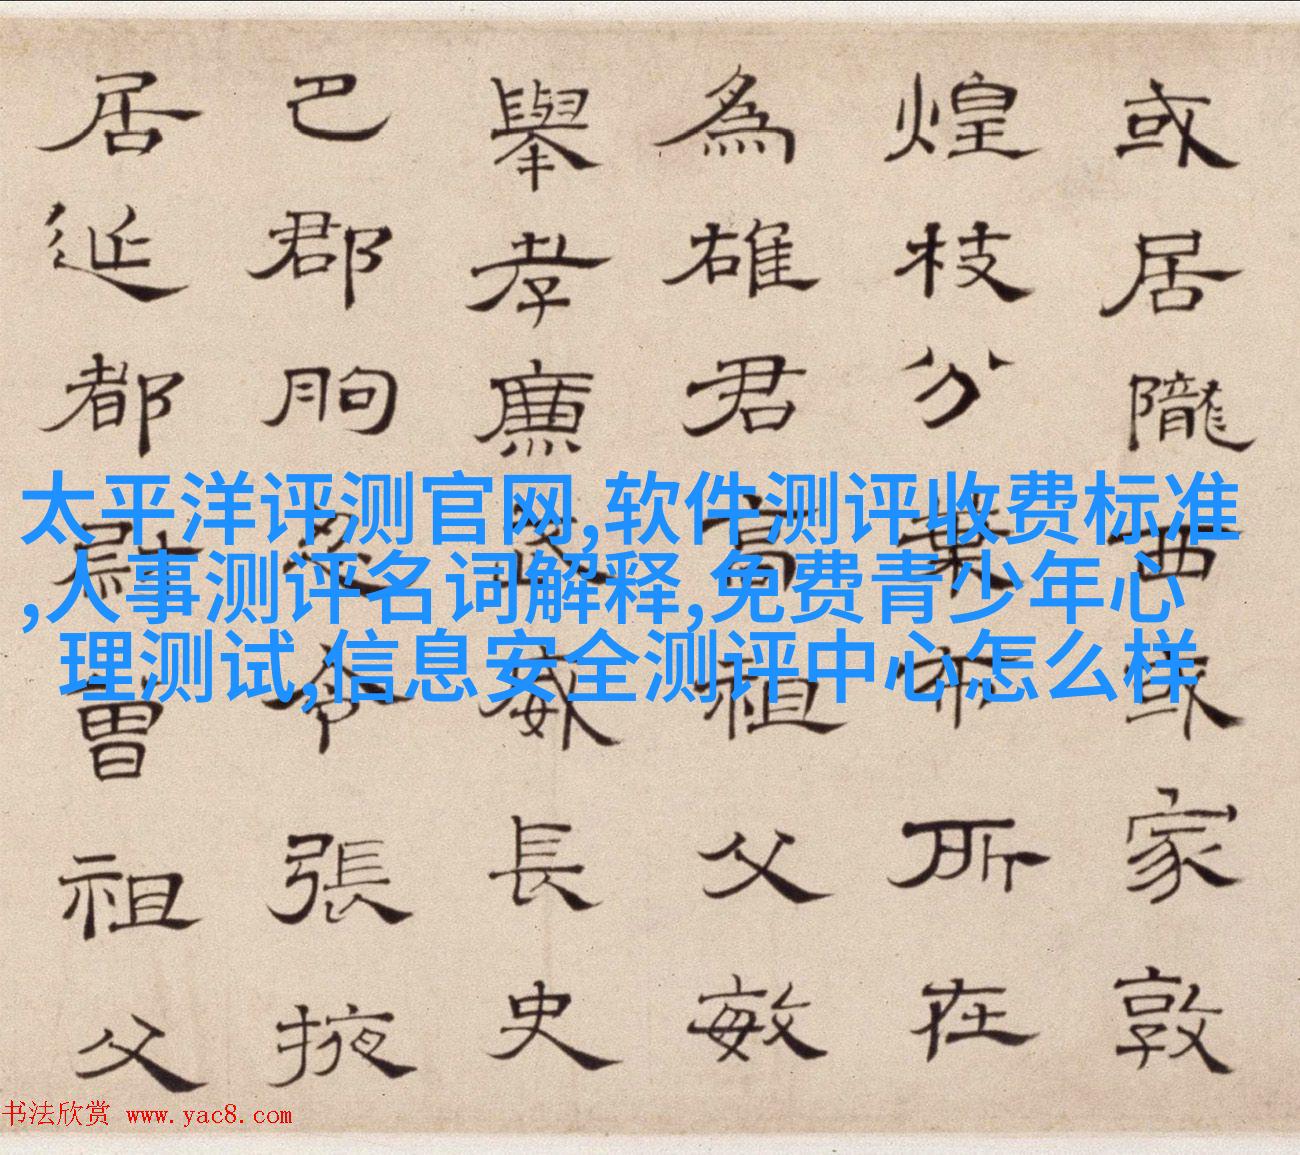 或居隴西或家敦
煌枝分葉布所在
為雄君高祖父敏
舉孝廉武威長史
巴郡朐忍令張掖
居延都尉曾祖父
太平洋评测官网,软件测评收费标准
,人事测评名词解释,免费青少年心
理测试,信息安全测评中心怎么样
书法欣赏 www.yac8.com